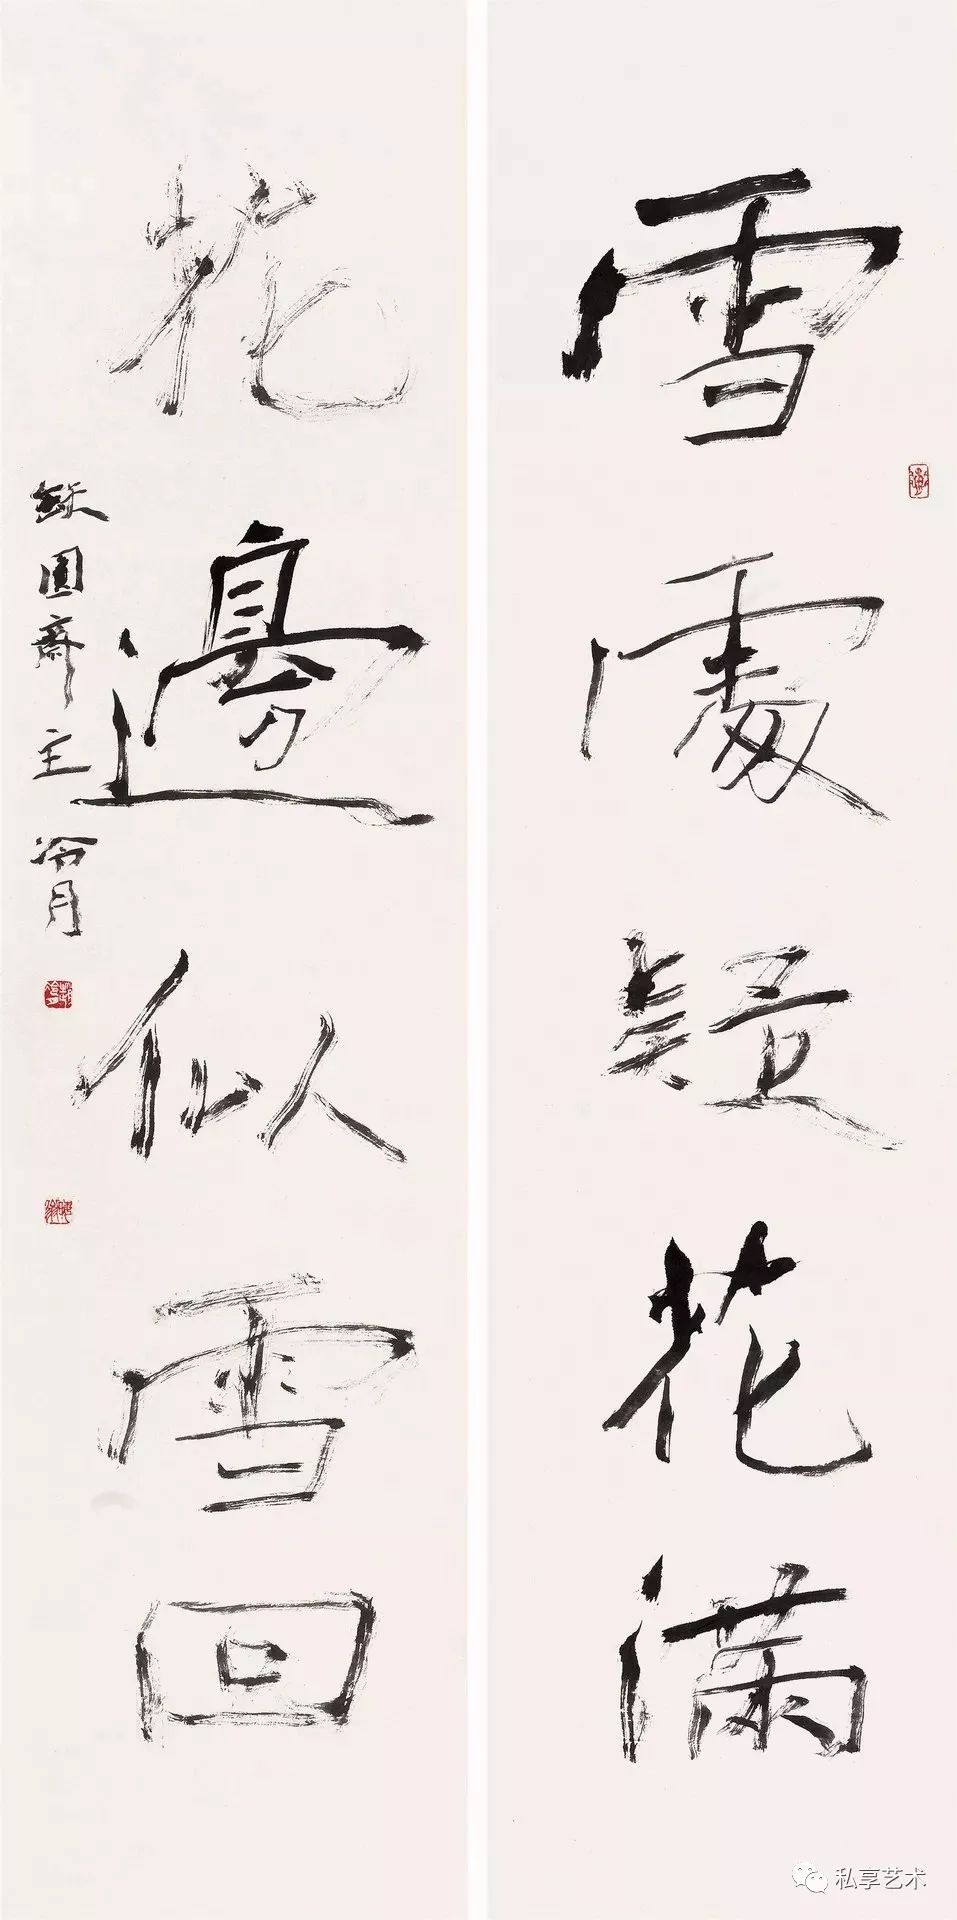 雪處疑花滿
花邊似雪回
缶圓齋主冷月
私享艺术